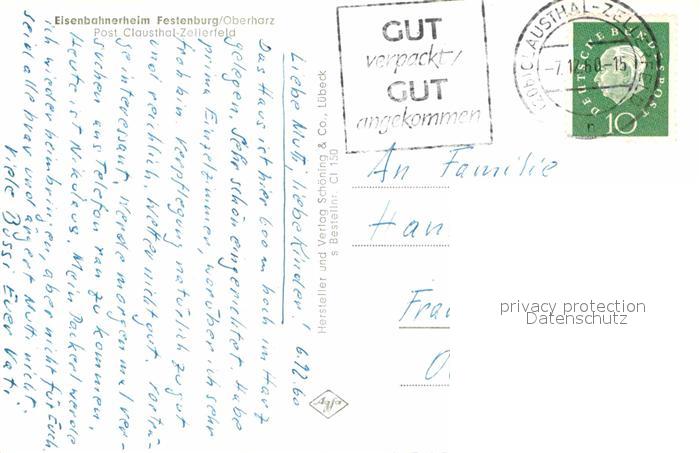 Eisenbahnerheim Festenburg/Oberharz
Post Clausthal-Zellerfeld
6.12.60
Liebe Mutti, liebe Kinder!
Das Haus ist hier 600 m hoch im Harz
gelegen. Sehr schön eingerichtet. Habe
prima Einzelzimmer, worüber ich sehr
froh bin. Verpflegung natürlich zu gut
und reichlich. Wetter nicht gut. Vorträ-
ge interessant. Werde morgen mal ver-
suchen ans Telefon ran zu kommen.
Heute ist Nikolaus. Mein Packerl werde
ich wieder heimbringen, aber nicht für Euch.
Seid alle brav und ärgert Mutti nicht.
Viele Bussi Euer Vati.
Hersteller und Verlag Schöning & Co., Lübeck
s Bestellnr. Cl 150
GUT
verpackt/
GUT
angekommen
CLAUSTHAL-ZELLERFELD
-7.12.60.-15
DEUTSCHE BUNDESPOST
10
An Familie
Han
Fra
privacy protection
Datenschutz